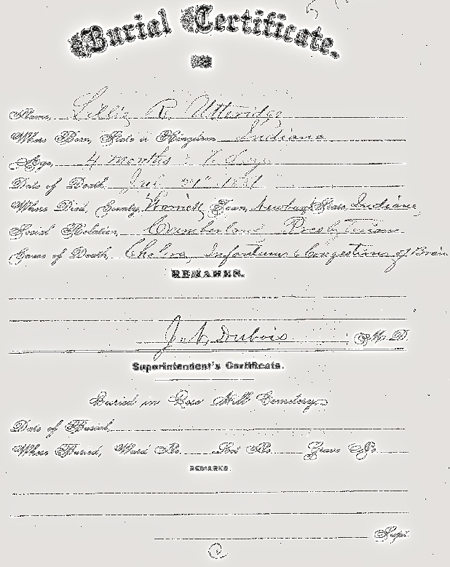 Burial Certificate.
Name, Lillie R. Uttridge
Where Born, State or Kingdom, Indiana
Age, 4 months
Date of Death, 1881
Where Died, County, Warrick Town, Newburgh State, Indiana
Social Relation, Cumberland Presbyterian
Cause of Death, Cholera Infantum & Congestion of Brain
REMARKS.
J. N. Dubois M. D.
Superintendent's Certificate.
Buried in Rose Hill Cemetery
Date of Burial,
Where Buried, Ward No. Lot No. Grave No.
REMARKS.
Supt.